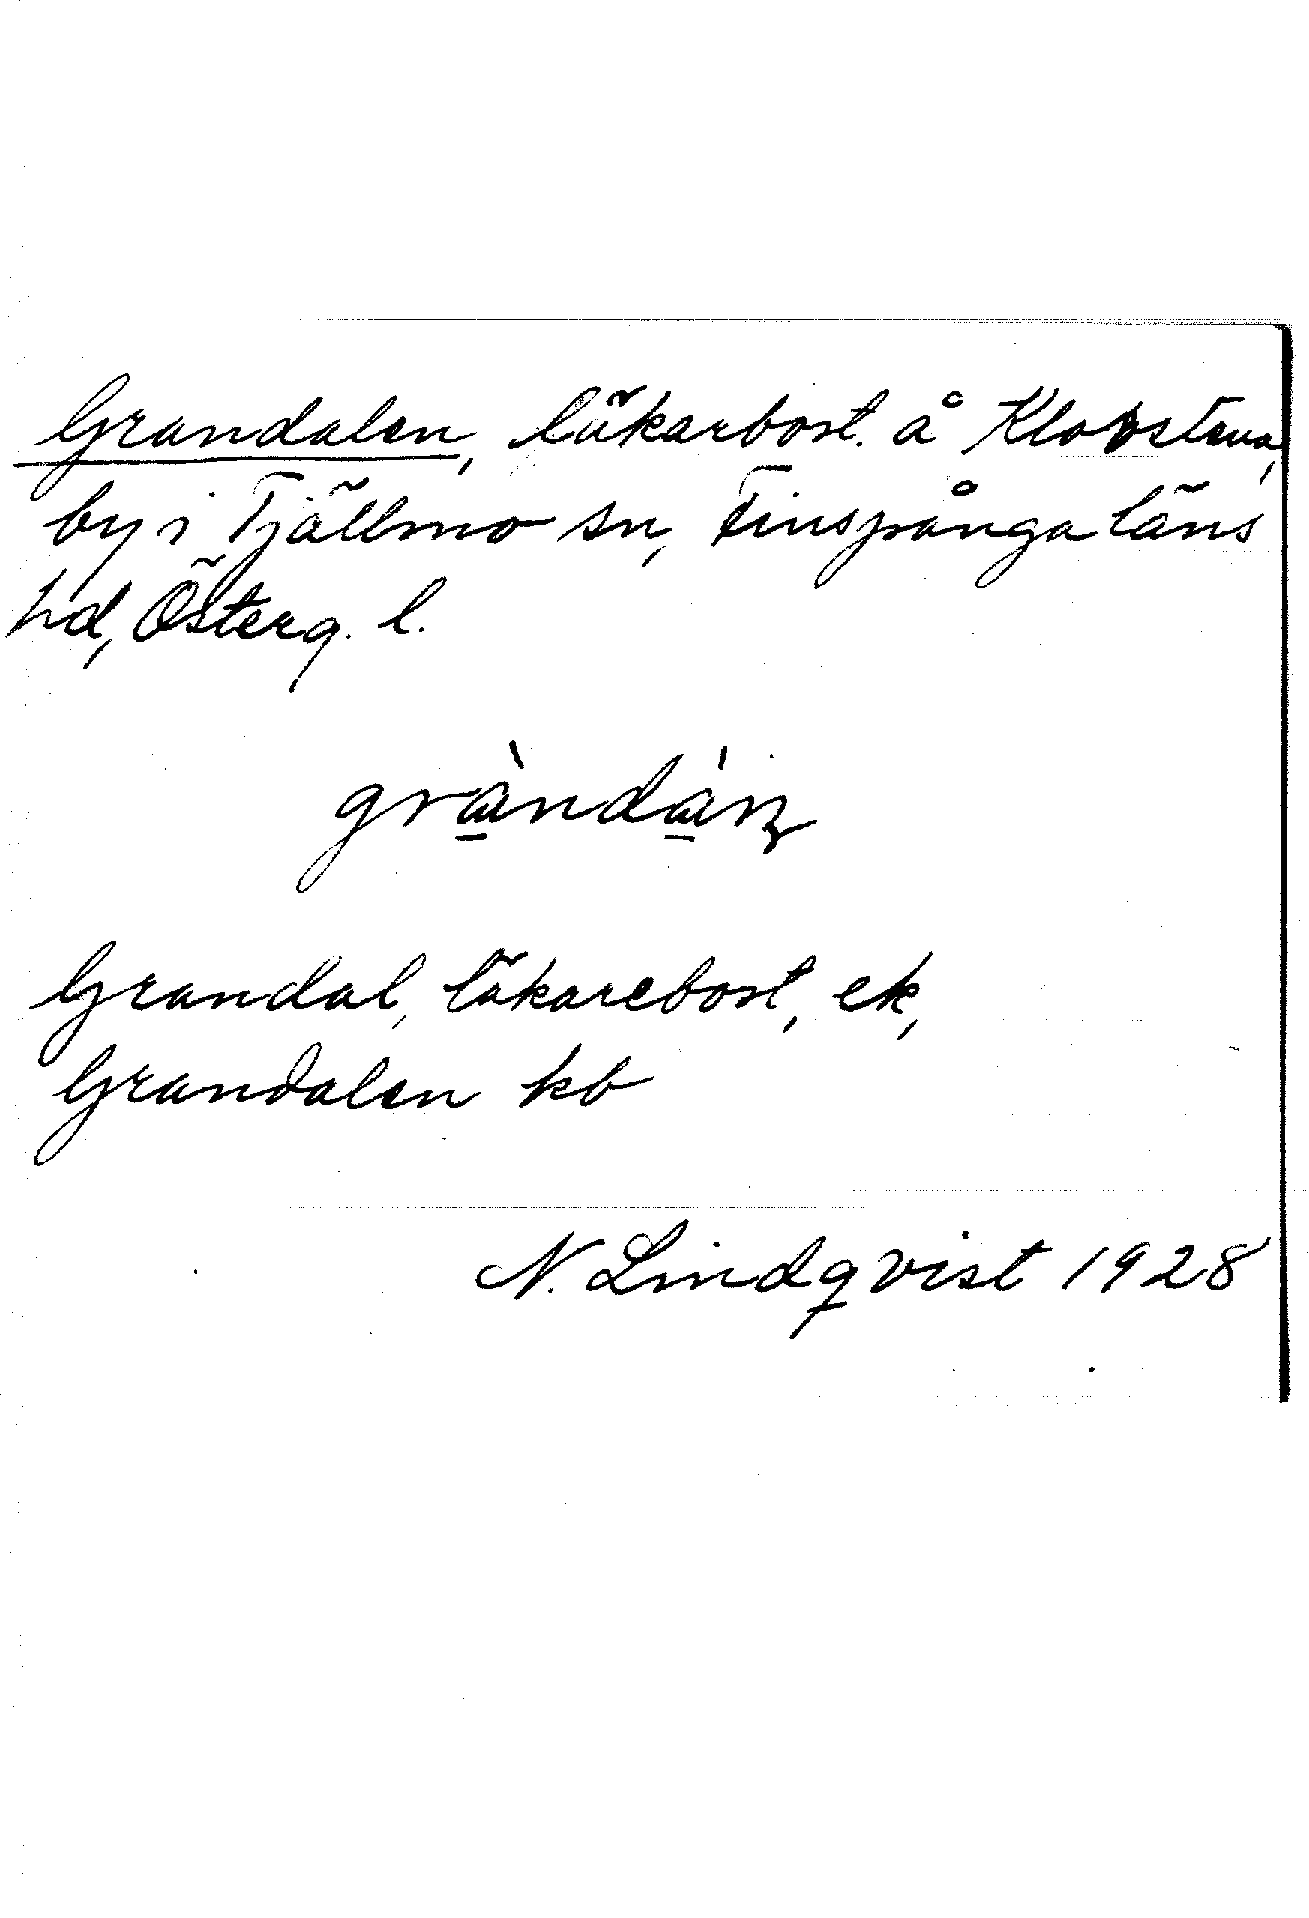 Grandalen, läkarbost. å Klobstena,
by i Tjällmo sn, Finspånga läns
hd, Österg. l.
gràndán
Grandal, läkarebost, ek,
Grandalen kb
N. Lindqvist 1928